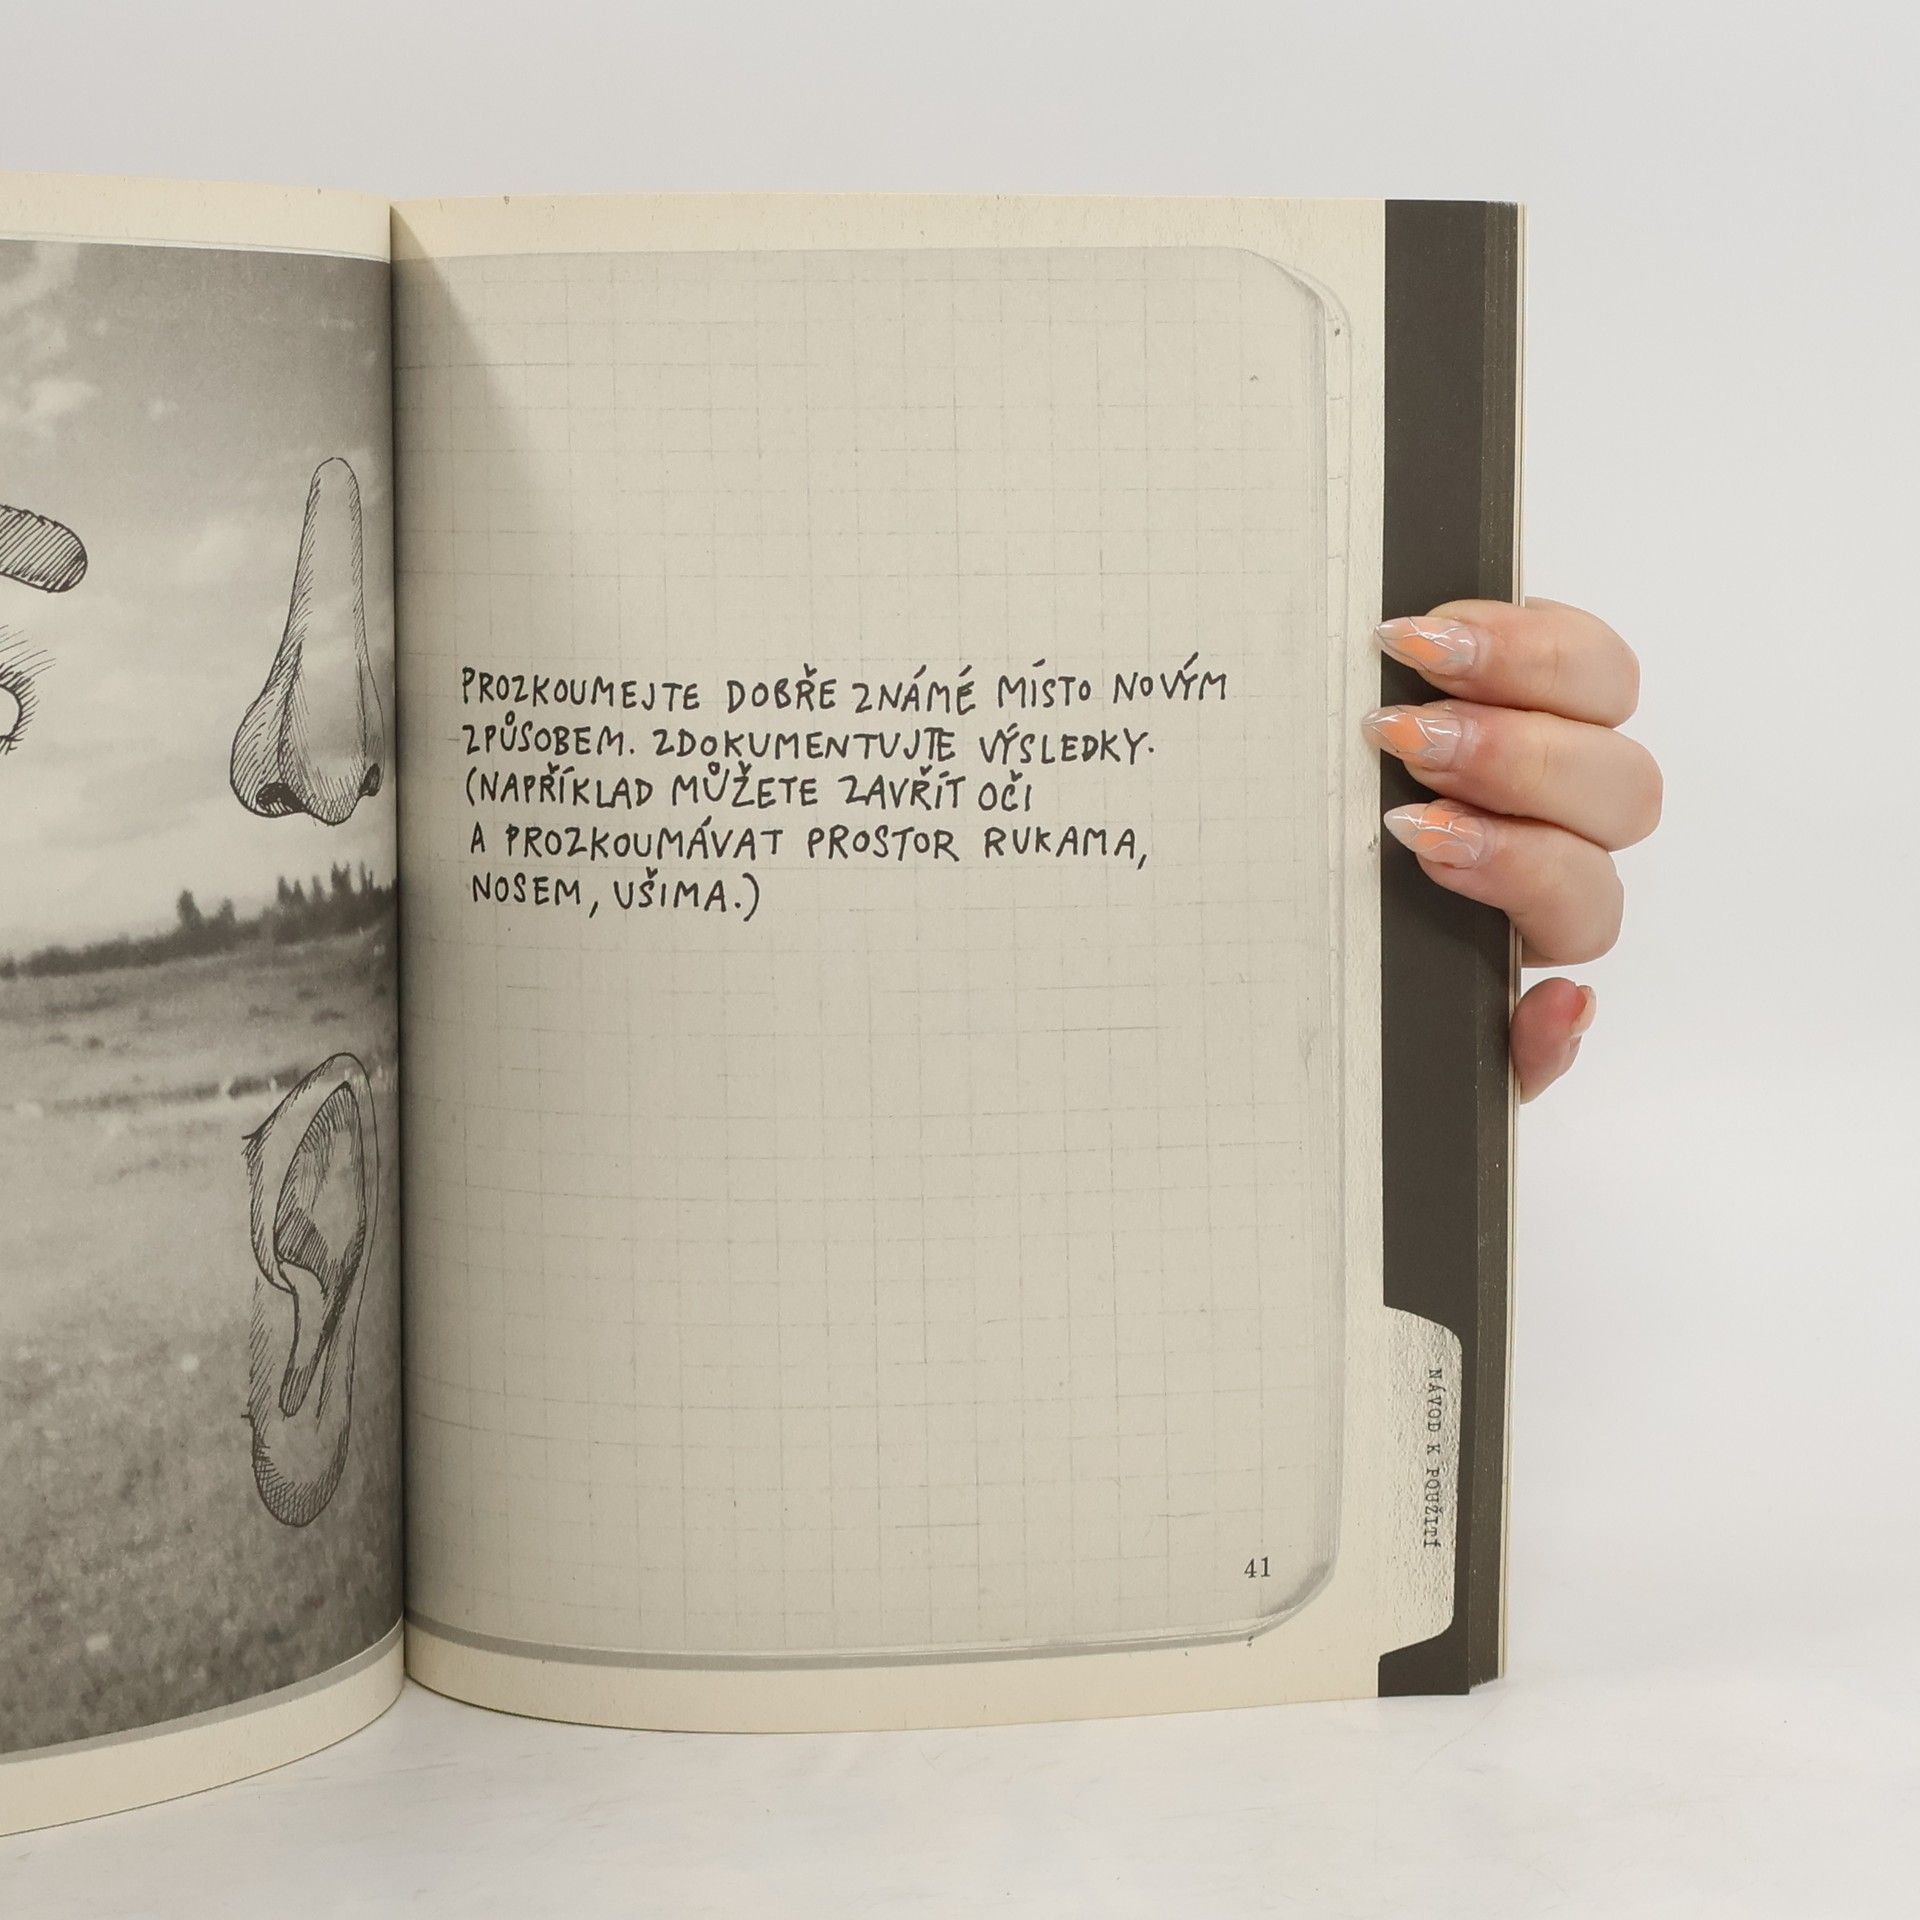 PROZKOUMEJTE DOBŘE ZNÁMÉ MÍSTO NOVÝM
ZPŮSOBEM. ZDOKUMENTUJTE VÝSLEDKY.
(NAPŘÍKLAD MŮŽETE ZAVŘÍT OČI
A PROZKOUMÁVAT PROSTOR RUKAMA,
NOSEM, UŠIMA.)
NÁVOD K POUŽITÍ
41